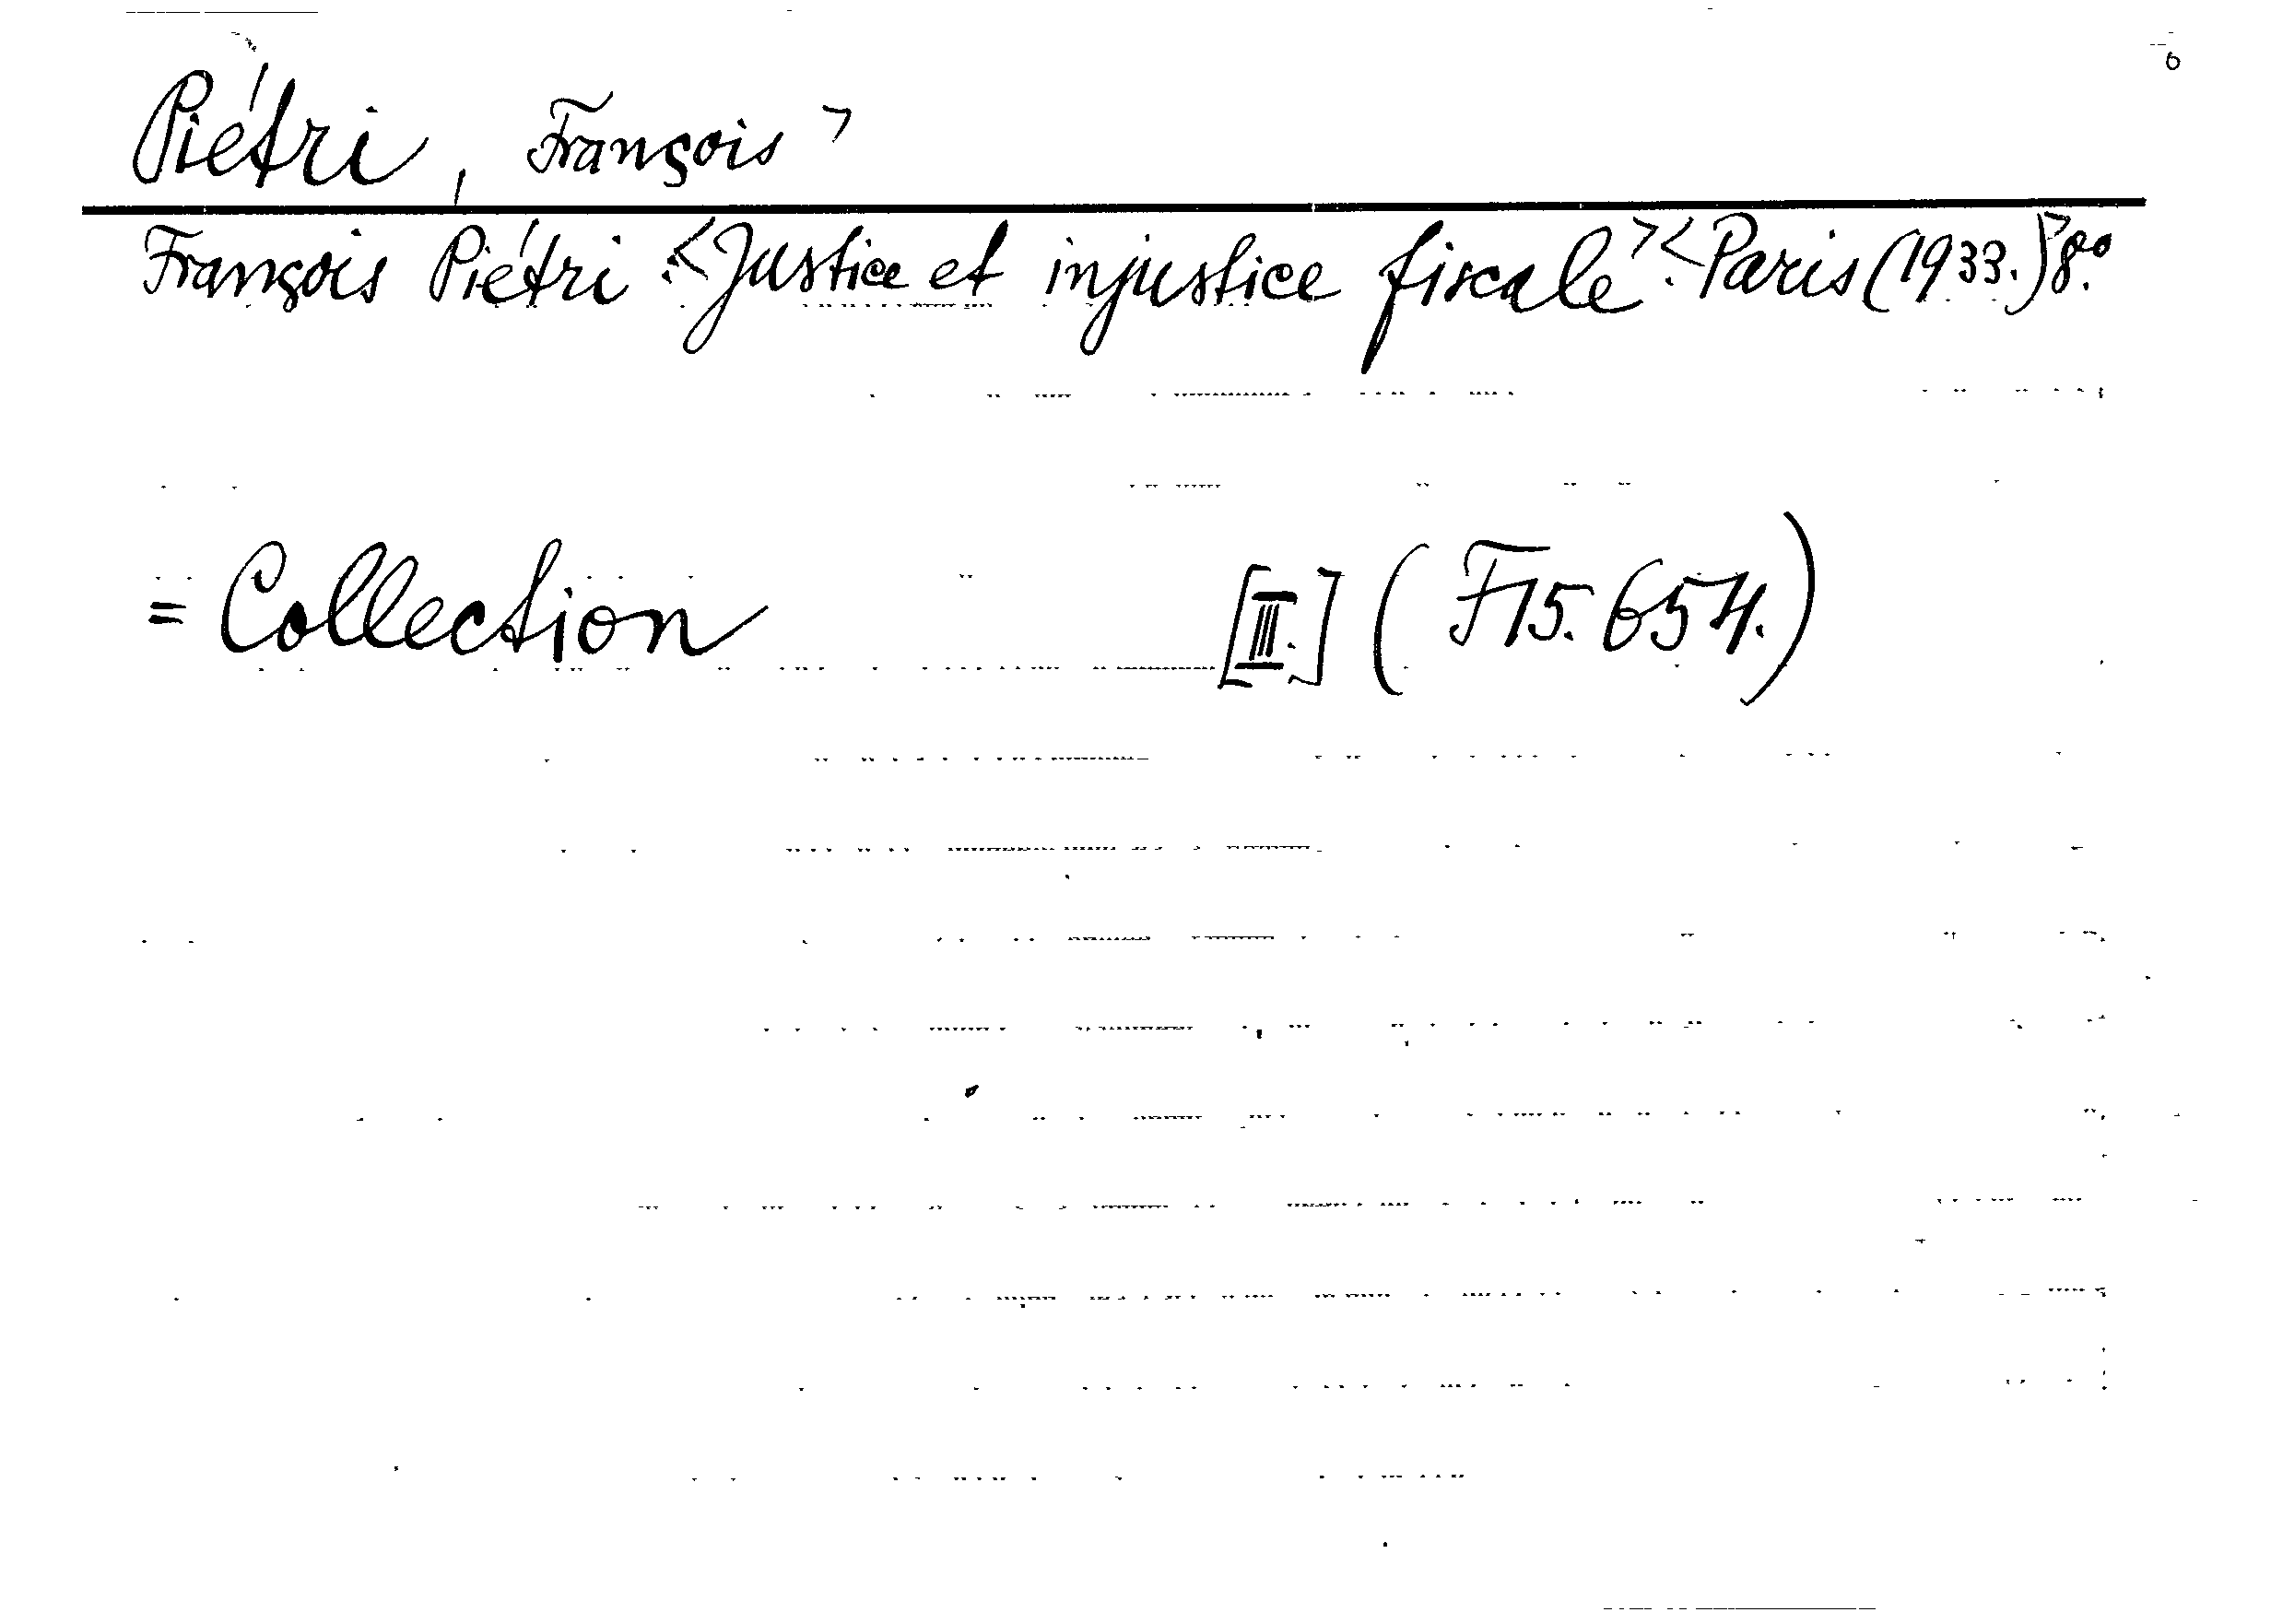 Piétri, François >
François Piétri: <Justice et injustice fiscale>. <Paris (1933.)> 8.º
= Collection [III.] (F 15.654.)